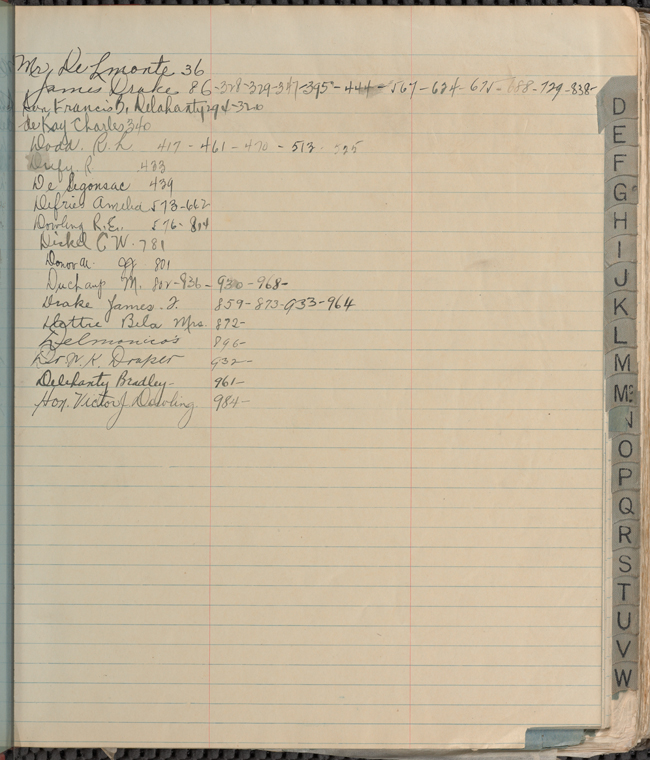 Mr. De Lmonte 36
James Drake 86-328-329-347-395-444-567-624-675-688-729-838-
Hon. Francis B. Delahanty 294-320
de Kay Charles 340
Dodd. R.H. 417 - 461 - 470 - 513
R 433
De Segonsac 439
Defries Amelia 573-662
Dowling R.E. 576-804
Dickel C W. 781
Donovan 801
Duchamp M. 802-836-930-968-
Drake James. F. 859-873-933-964
Hattie Bela Mrs. 872-
Delmonico's 896-
Dr. W. K. Draper 932-
Delehanty Bradley- 961-
Hon. Victor J Dowling 984-
D
E
F
G
H
I
J
K
L
M
Mc
N
O
P
Q
R
S
T
U
V
W